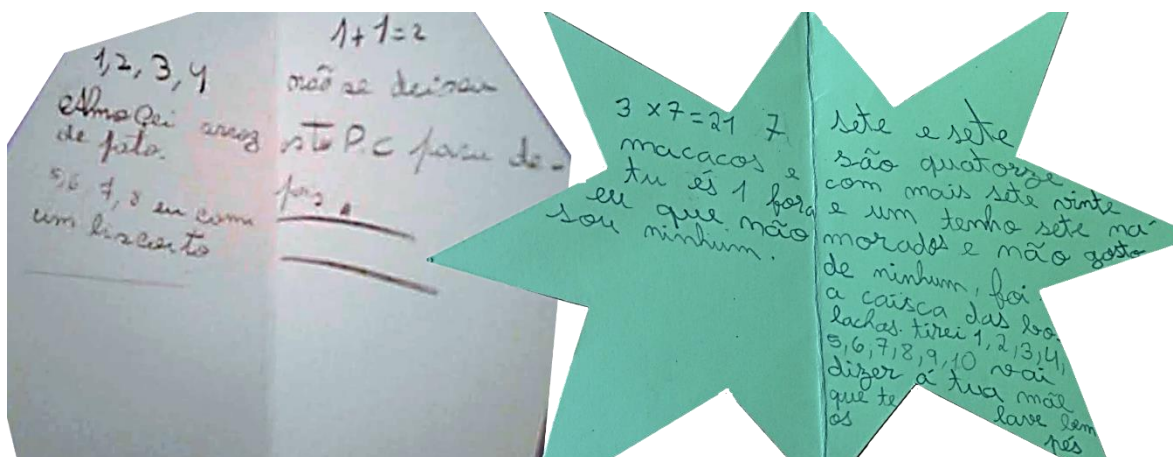 1, 2, 3, 4
Almoçei arroz
de pato.
5,6 7, 8 eu comi
um biscoito
1+1=2
não se deixeu
sto P.C para de-
pois.
3 x 7 = 21 7
macacos e
tu és 1 fora
eu que não
sou ninhum.
sete e sete
são quatorze
com mais sete vinte
e um tenho sete na-
morados e não gosto
de ninhum, foi
a caisca das bo-
lachas tirei 1, 2, 3, 4,
5, 6, 7, 8, 9, 10 vai
dizer á tua mãe
que te lave bem
os pés